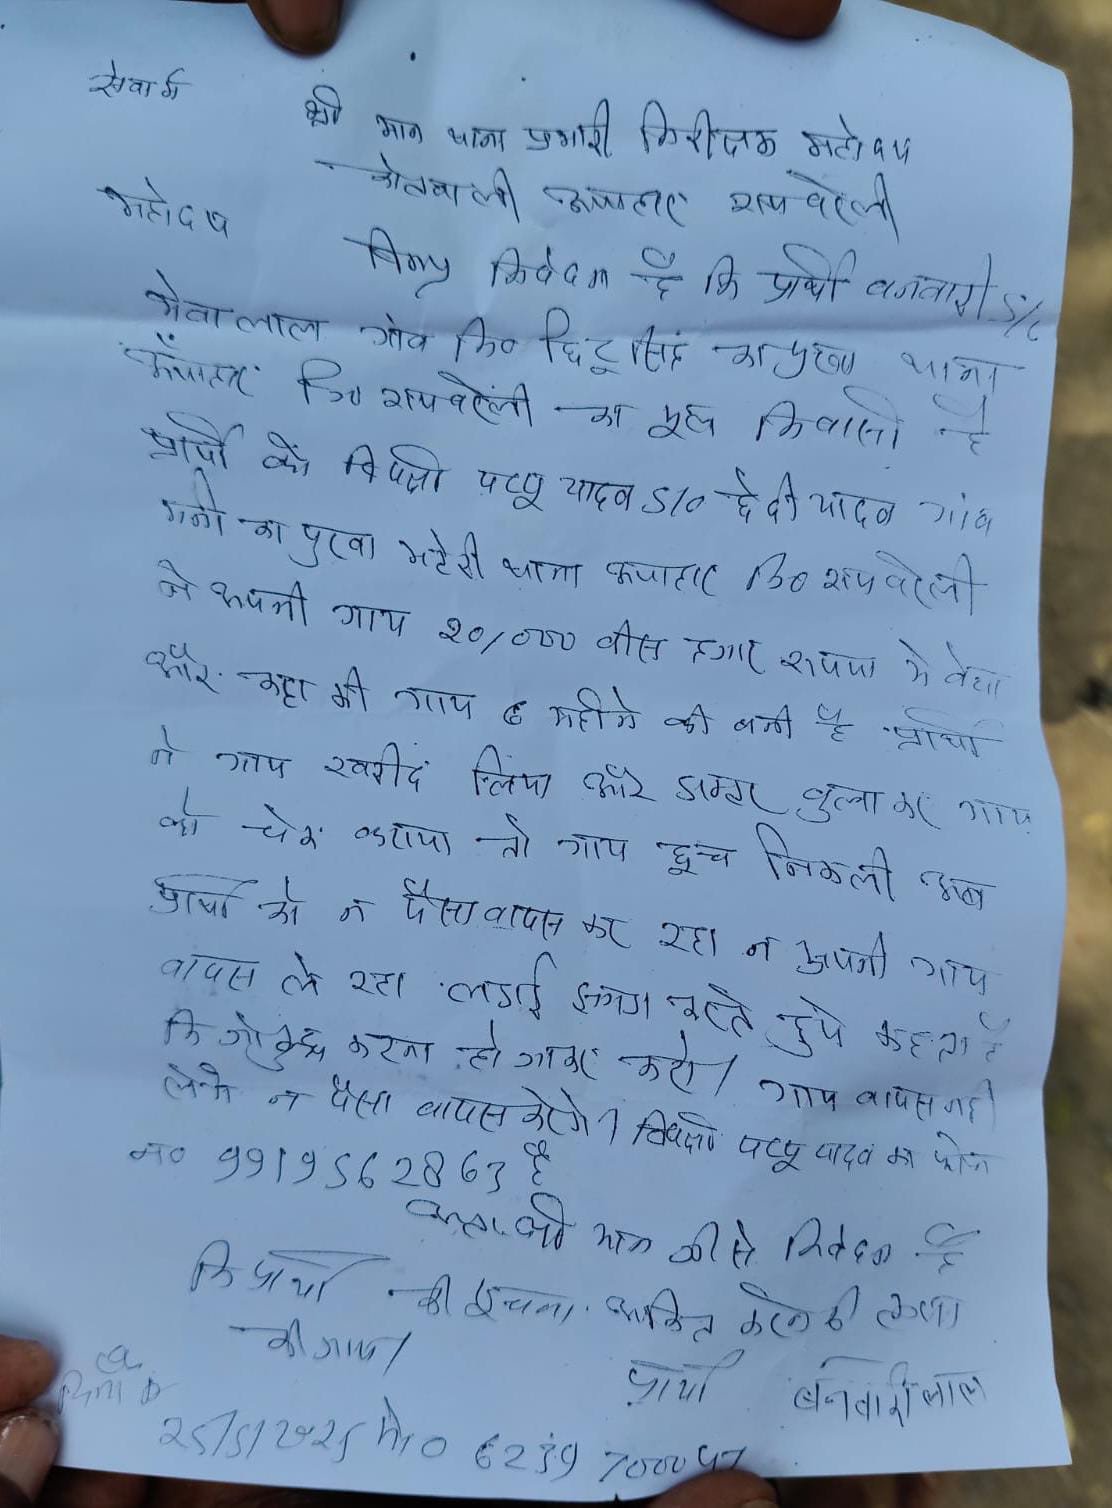 सेवा में
श्री मान थाना प्रभारी निरीक्षक महोदय
कोतवाली ऊंचाहार रायबरेली
महोदय
विनम्र निवेदन है कि प्रार्थी बनवारी S/O
मेवालाल गांव नि० छिटू सिंह का पुरवा थाना
ऊँचाहार जि० रायबरेली का मूल निवासी है
प्रार्थी को विपक्षी पप्पू यादव S/O छेदी यादव गांव
गनी का पुरवा थाना ऊंचाहार जि० रायबरेली
ने अपनी गाय 20/000 बीस हजार रूपया मे बेचा
और कहा की गाय 6 महीने की बनी है प्रार्थी
ने गाय खरीद लिया और डाक्टर बुला कर गाय
को चेक कराया तो गाय छूछ निकली अब
प्रार्थी को न पैसा वापस कर रहा न अपनी गाय
वापस ले रहा लडाई झगडा करते हुये कहता है
कि जो कुछ करना हो जाकर करो। गाय वापस नही
लेगे न पैसा वापस करेगे। विपक्षी पप्पू यादव का फोन
न० 9919562863 है
अतः श्री मान जी से निवेदन है
कि प्रार्थी की सूचना अंकित करने की कृपा
की जाय।
प्रार्थी बनवारी लाल
दिनांक
25/5/2025 मो० 6239700057